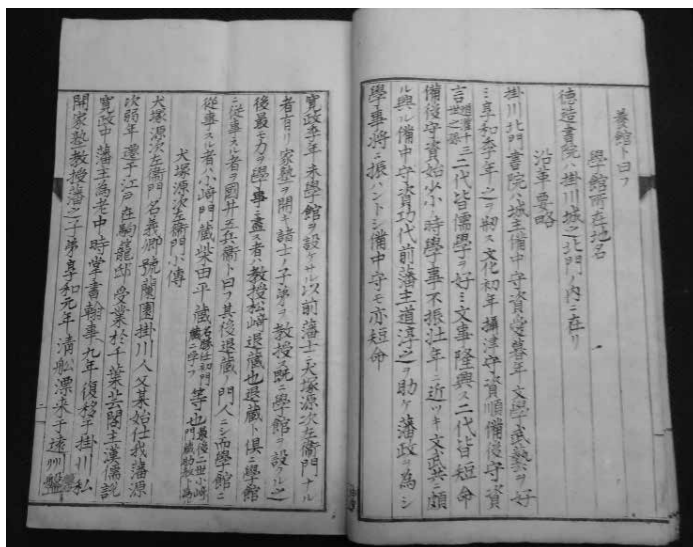 養館ト曰フ
學館所在地名
德造書院ハ掛川城之北門ノ内ニ在リ
沿革要略
掛川北門書院ハ城主備中守資愛暮年文學武藝ヲ好
ミ享和季年之ヲ剏ス文化初年攝津守資順備後守資
言二代皆儒學ヲ好ミ文事隆興ス二代皆短命
備後守資始少小ノ時學事不振壯年ニ近ツキ文武共ニ頗
ル興ル備中守資功代前藩主道淳之ヲ助ケ藩政ヲ為シ
學事將ニ振ハントシ備中守モ亦短命
寛政季年未學館ヲ設ケサル以前藩士ニ犬塚源次左衛門ナル
者有リ家塾ヲ開キ諸士ノ子弟ヲ教授ス既ニ學館ヲ設ル之
後最モ力ヲ學事ニ盡ス者ハ教授松崎退藏也退藏ト俱ニ學館
ニ從事スル者ヲ國井三兵衛ト曰フ其後退藏ノ門人ニ而學館ニ
從事スル者ハ小崎門藏柴田平藏等也
犬塚源次左衛門小傳
犬塚源次左衛門名我卿號蘭園掛川人父某始仕我藩源
次弱年遊于江戸在駒龍邸受業於千葉芸閣主漢儒説
寛政中藩主為老中ノ時掌書翰事九年復移于掛川私
開家塾教授藩之子弟享和元年清舩漂来于遠州